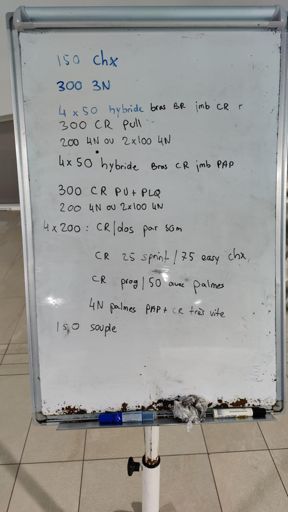 150 chx
300 3N
4 x 50 hybride bras BR jmb CR r
300 CR Pull
200 4N ou 2x100 4N
4x50 hybride Bras CR jmb PAP
300 CR PU + PLQ
200 4N ou 2x100 4N
4x200 : CR/dos par 50m
CR 25 sprint / 75 easy chx
CR prog / 50 avec palmes
4N palmes PAP + CR très vite
150 souple